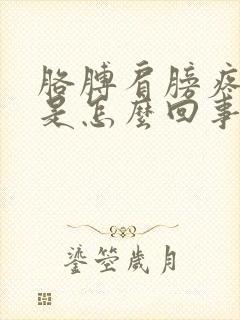 胳膊肩膀疼
是怎麼回事
鎏箜歲月